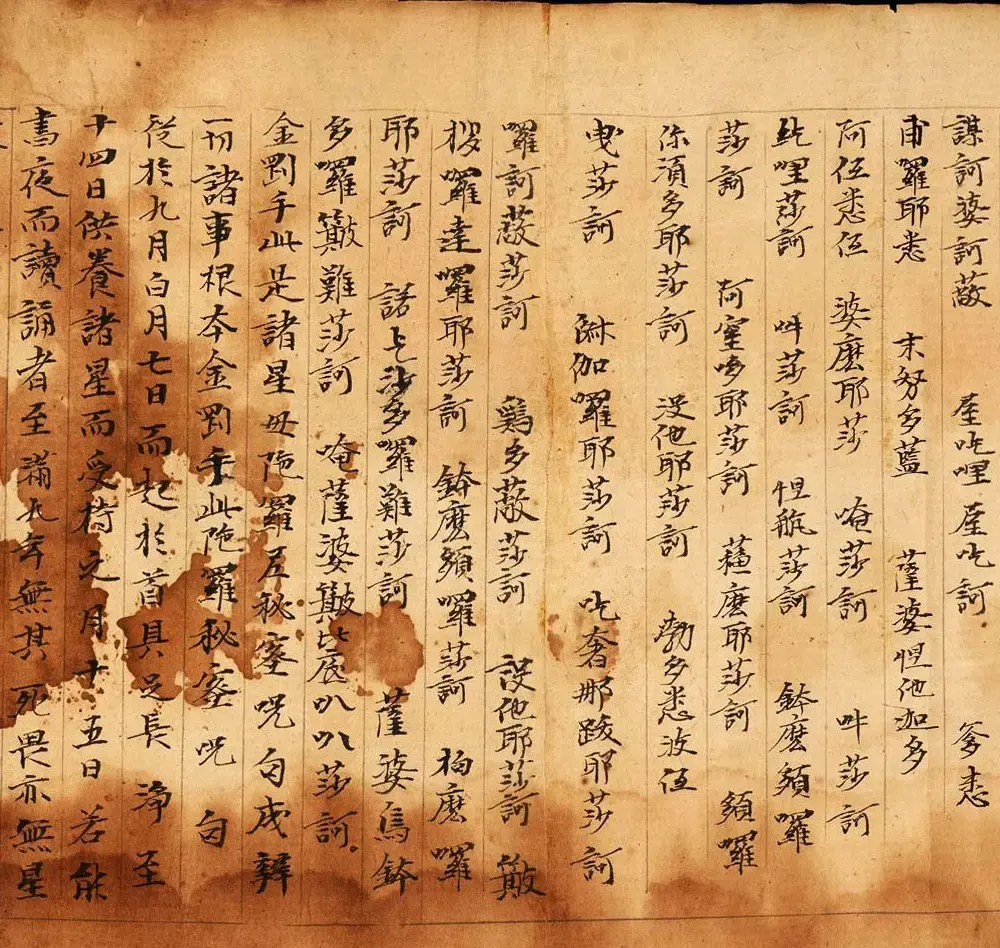 謨訶婆訶蔽 屋吃哩屋吃訶 爹悉
甫羅耶悉 末努多藍 薩婆怛他迦多
阿伍悉伍 婆麽耶莎 唵莎訶 吽莎訶
紇哩莎訶 吽莎訶 怛㖶莎訶 鉢麽頞囉
莎訶 阿室哆耶莎訶 蘓麽耶莎訶 頞囉
你湏多耶莎訶 没他耶莎訶 勃多悉波伍
曳莎訶 伽囉耶莎訶 吃奢那跋耶莎訶
囉訶蔽莎訶 鷄多蔽莎訶 没他耶莎訶 簸
桜囉達囉耶莎訶 鉢麽頞囉莎訶 構麽囉
耶莎訶 諾乞沙多囉難莎訶 薩婆烏鉢
多囉簸難莎訶 唵薩婆簸比底叭叭莎訶
金罡手此是諸星毋陁羅尼秘密呪句成辦
一切諸事根本金罡手此陁羅秘密呪句
從於九月白月七日而起於首具足長淨至
十四日供養諸星而受持之月十五日若能
書夜而讀誦者至滿九年無其死畏亦無星